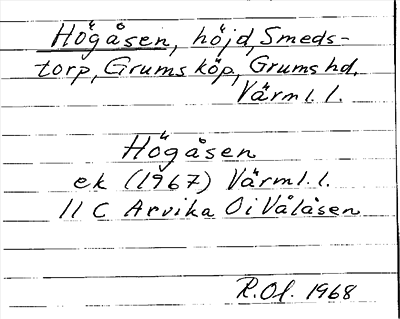 Högåsen, höjd, Smeds-
torp, Grums köp, Grums hd.
Värml. l.
Högåsen
ek (1967) Värml. l.
11 C Arvika Oi Vålåsen
R.Ol. 1968